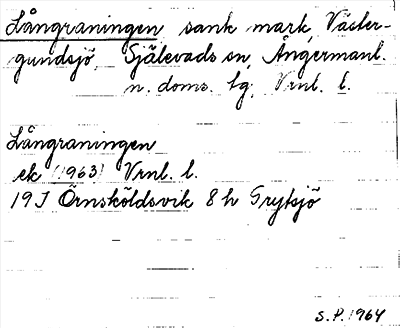 Långraningen sank mark, Väster-
gundsjö, Själevads sn, Ångermanl.
n. doms. tg, Vrnl. l.
Långraningen
ek (1963) Vrnl. l.
19J Örnsköldsvik 8h Grytsjö
S.P. 1964